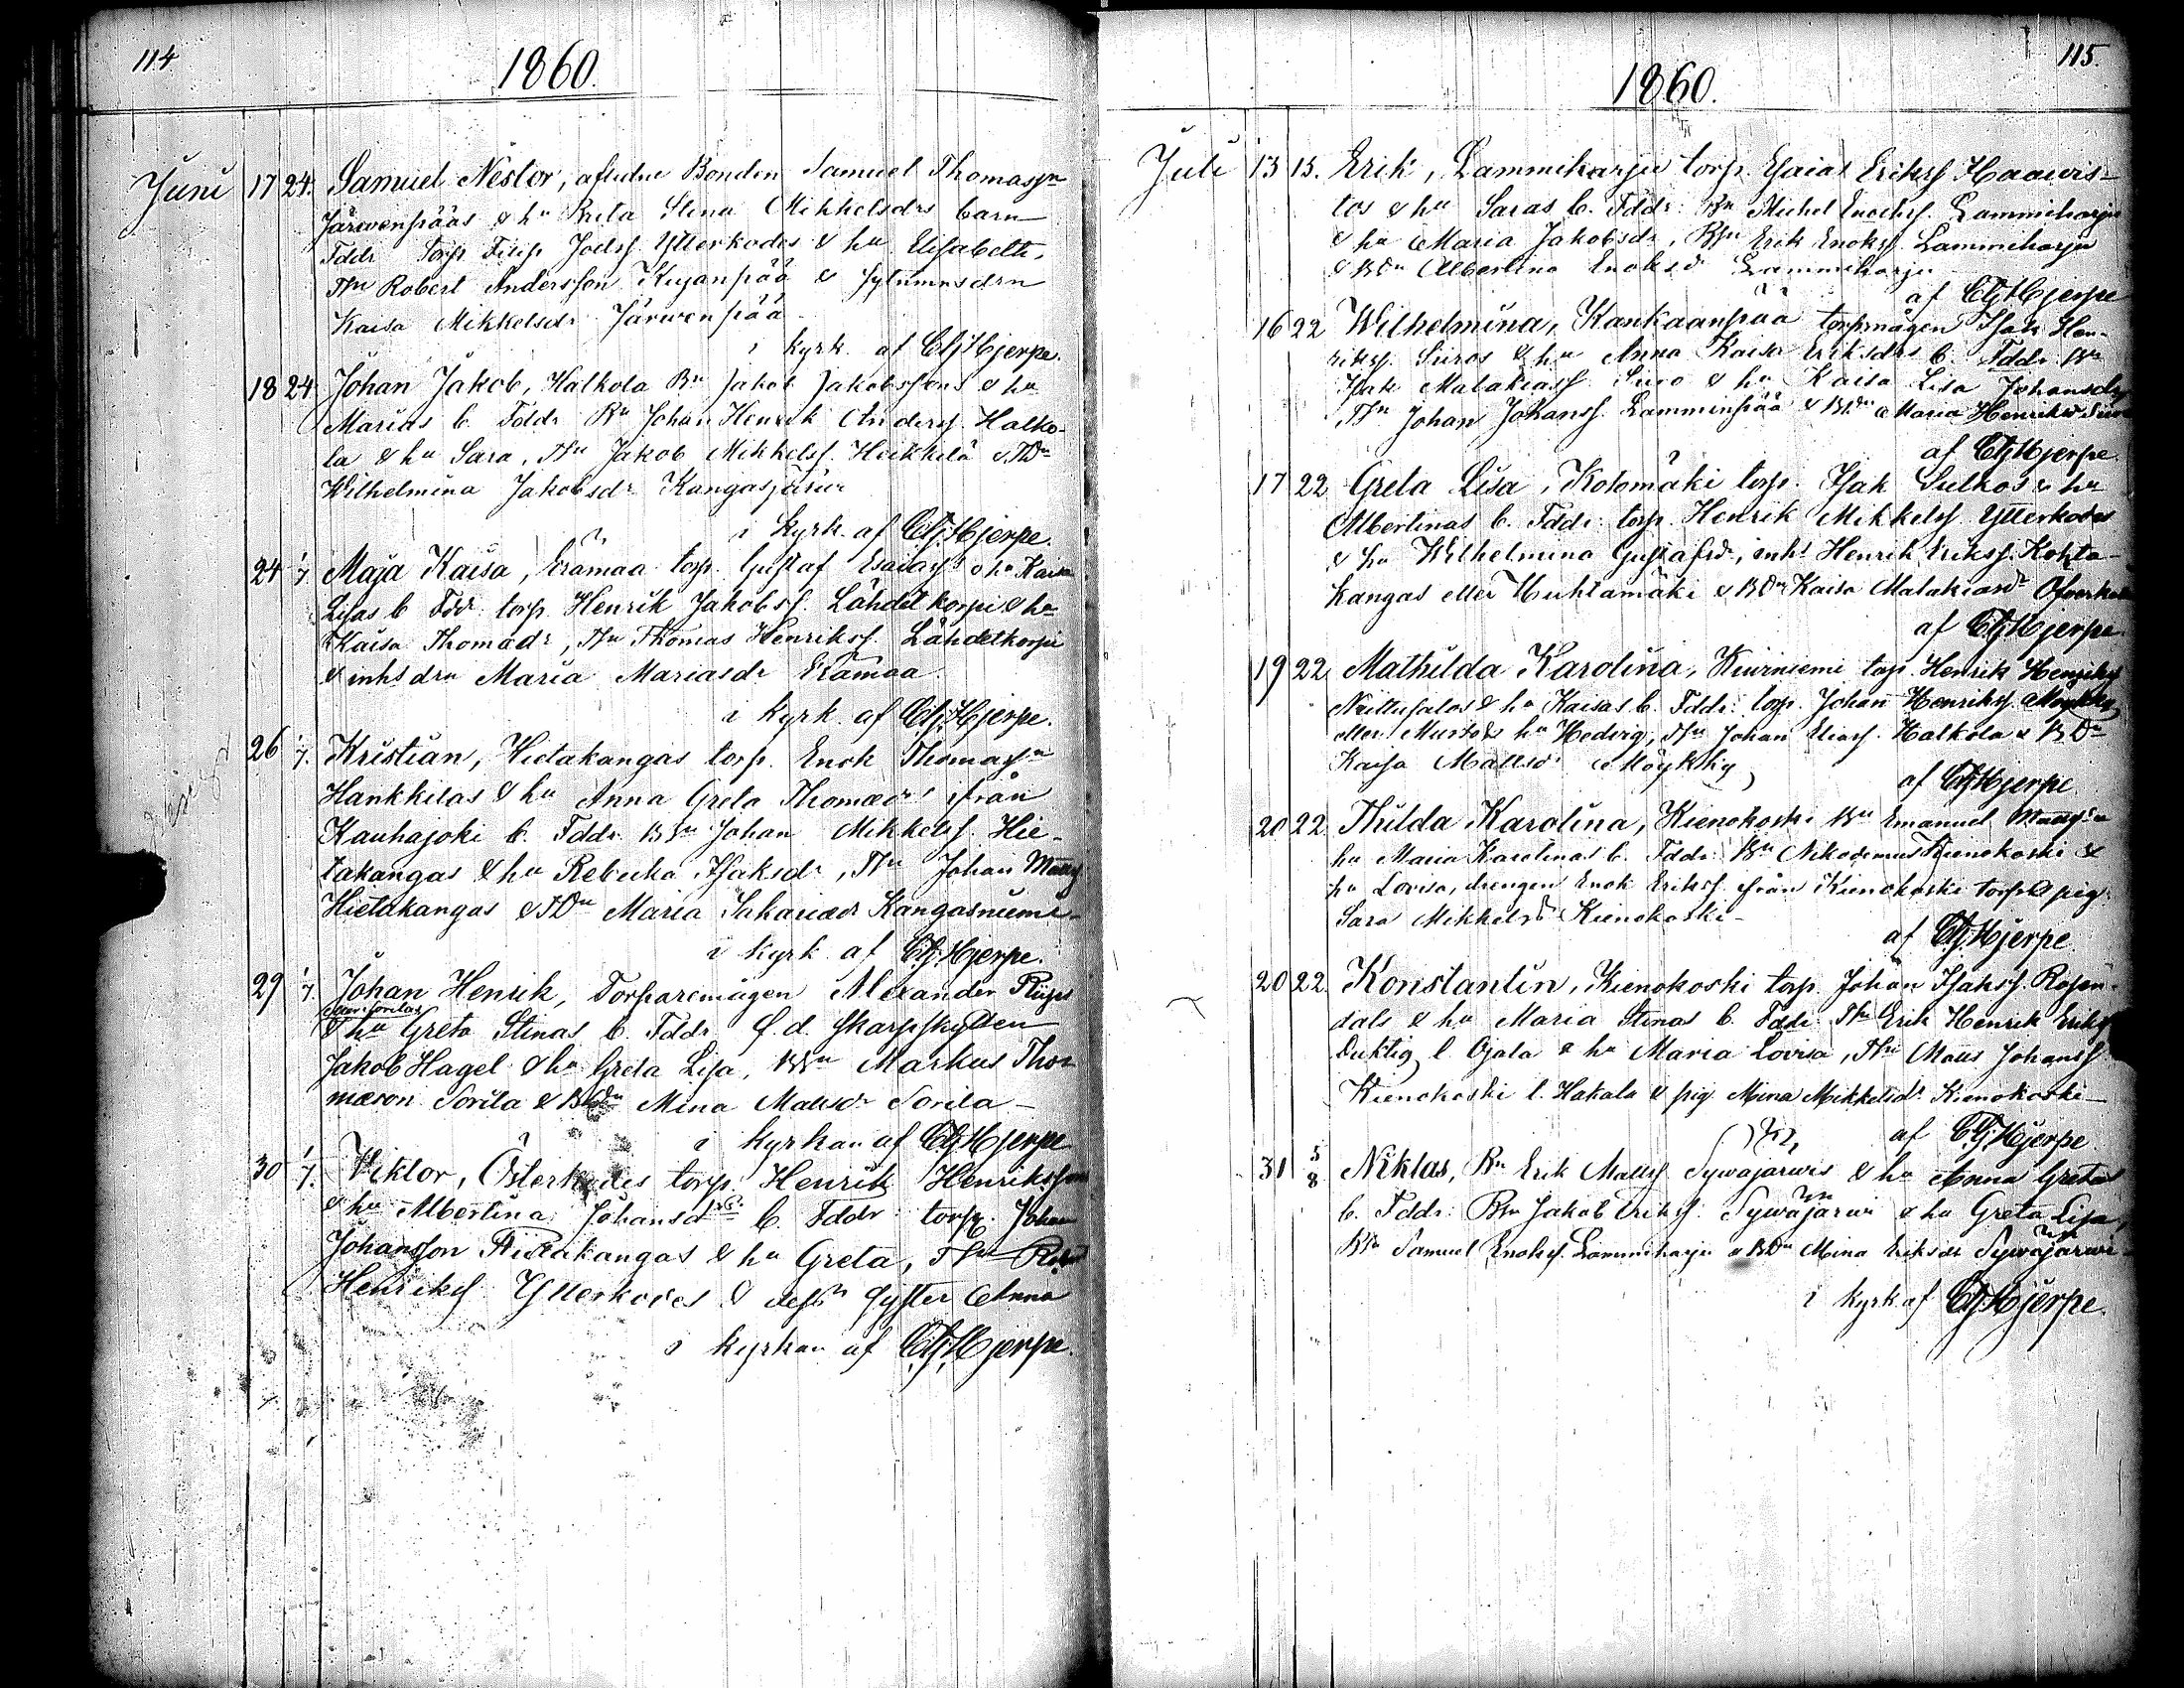 114
1860.
Juni 17 24. Samuel Nestor, aflidne Bonden Samuel Thomassns
Järwenpääs & hu Breta Stina Mikkelsdrs barn
Fddr Torp. Filip Joelss. Ytterkodes & hu Elisabeth,
Ysn Robert Andersson Kujanpää &
Kaisa Mikkelsdr Järwenpää
i kyrk. af CGHjerpe.
18 24 Johan Jakob, Halkola Bn Jakob Jakobssons & hu
Marias b. Fddr Bn Johan Henrik Anderss. Halko-
la & hu Sara, Ysn Jakob Mikkelss. Heikkilä & TDn
Wilhelmina Jakobsdr Kangasjärwi
i kyrk. af CGHjerpe.
24 1/7 Maja Kaisa, Erämaa torp. Gustaf Esaiass. & hu Kaisa
Lisas b. Fddr torp. Henrik Jakobss. Lähdetkorpi & hu
Kaisa Thomædr, Ysn Thomas Henrikss. Lähdetkorpi
& inhsdrn Maria Mariasdr Erämaa.
i kyrk. af CGHjerpe.
26 1/7. Kristian, Hietakangas torp. Enok Thomassn
Hankkilas & hu Anna Greta Thomædrs ifrån
Kauhajoki b. Fddr BSn Johan Mikkelss. Hie-
takangas & hu Rebecka Isaksdr, Ysn Johan Matss.
Hietakangas & TDn Maria Sakariædr Kangasniemi
i kyrk. af CGHjerpe.
29 1/7. Johan Henrik, Torparemågen Alexander
& hu Greta Stinas b. Fddr f.d. skarpskytten
Jakob Hagel & hu Greta Lisa, BSn Markus Tho-
mæson Sorila & BDn Mina Mattsdr Sorila
i kyrkan af CGHjerpe
30 1/7. Viktor, Österkodes torp. Henrik Henrikssons
& hu Albertina Johansdrs b. Fddr torp. Johan
Johansson Hietakangas & hu Greta, Ysn
Henrikss. Ytterkodes & dess syster Anna
i kyrkan af CGHjerpe.
115.
1860.
Juli 13 15. Erik, Lammiharju torp. Esaias Erikss. Haawis-
tos & hu Saras b. Fddr Bn Michel Enochss. Lammiharju
& hu Maria Jakobsdr, BSn Erik Enokss. Lammiharju
& BDn Albertina Enoksdr Lammiharju
af CGHjerpe
16 22 Wilhelmina, Kankaanpää torpmågen Isak Hen-
rikss. Siiros & hu Anna Kaisa Eriksdrs b. Fddr Bn
Isak Malakiass. Siiro & hu Kaisa Lisa Johansdr
Ysn Johan Johanss. Lamminpää & BDn Maria Henriksdr
af CGHjerpe.
17 22 Greta Lisa, Kotomäki torp. Isak Sulkos & hu
Albertinas b. Fddr torp. Henrik Mikkelss. Ytterkodes
& hu Wilhelmina Gustafsdr, inhs Henrik Erikss. Kohta-
kangas eller Huhtamäki & BDn Kaisa Malakiasdr
af CGHjerpe
19 22 Mathilda Karolina, Kiwiniemi torp. Henrik Henrikss.
Niittusalos & hu Kaisas b. Fddr torp. Johan Henrikss. Möykky
eller Musto & hu Hedvig, Ysn Johan Eliass. Halkola & BDn
Kaisa Mattsdr Möykky
af CGHjerpe.
20 22 Thilda Karolina, Kienokoski Bn Emanuel Matssns
hu Maria Karolinas b. Fddr Bn Nikodemus Kienokoski &
hu Lovisa, drengen Enok Erikss. från Kienokoski torp & pig.
Sara Mikkelsdr Kienokoski
af CGHjerpe
20 22 Konstantin, Kienokoski torp. Johan Isakss. Rosen-
dals & hu Maria Stinas b. Fddr Ysn Erik Henrik Erikss.
Duktig l. Ojala & hu Maria Lovisa, Ysn Matts Johanss.
Kienokoski l. Hakala & pig. Mina Mikkelsdr Kienokoski
af CGHjerpe
31 5/8 Niklas, Bn Erik Mattss. Sywäjärwis & hu Anna Gretas
b. Fddr Bn Jakob Erikss. Sywäjärwi & hu Greta Lisa,
BSn Samuel Enokss. Lammiharju & BDn Mina Eriksdr Sywäjärwi
i kyrk. af CGHjerpe.